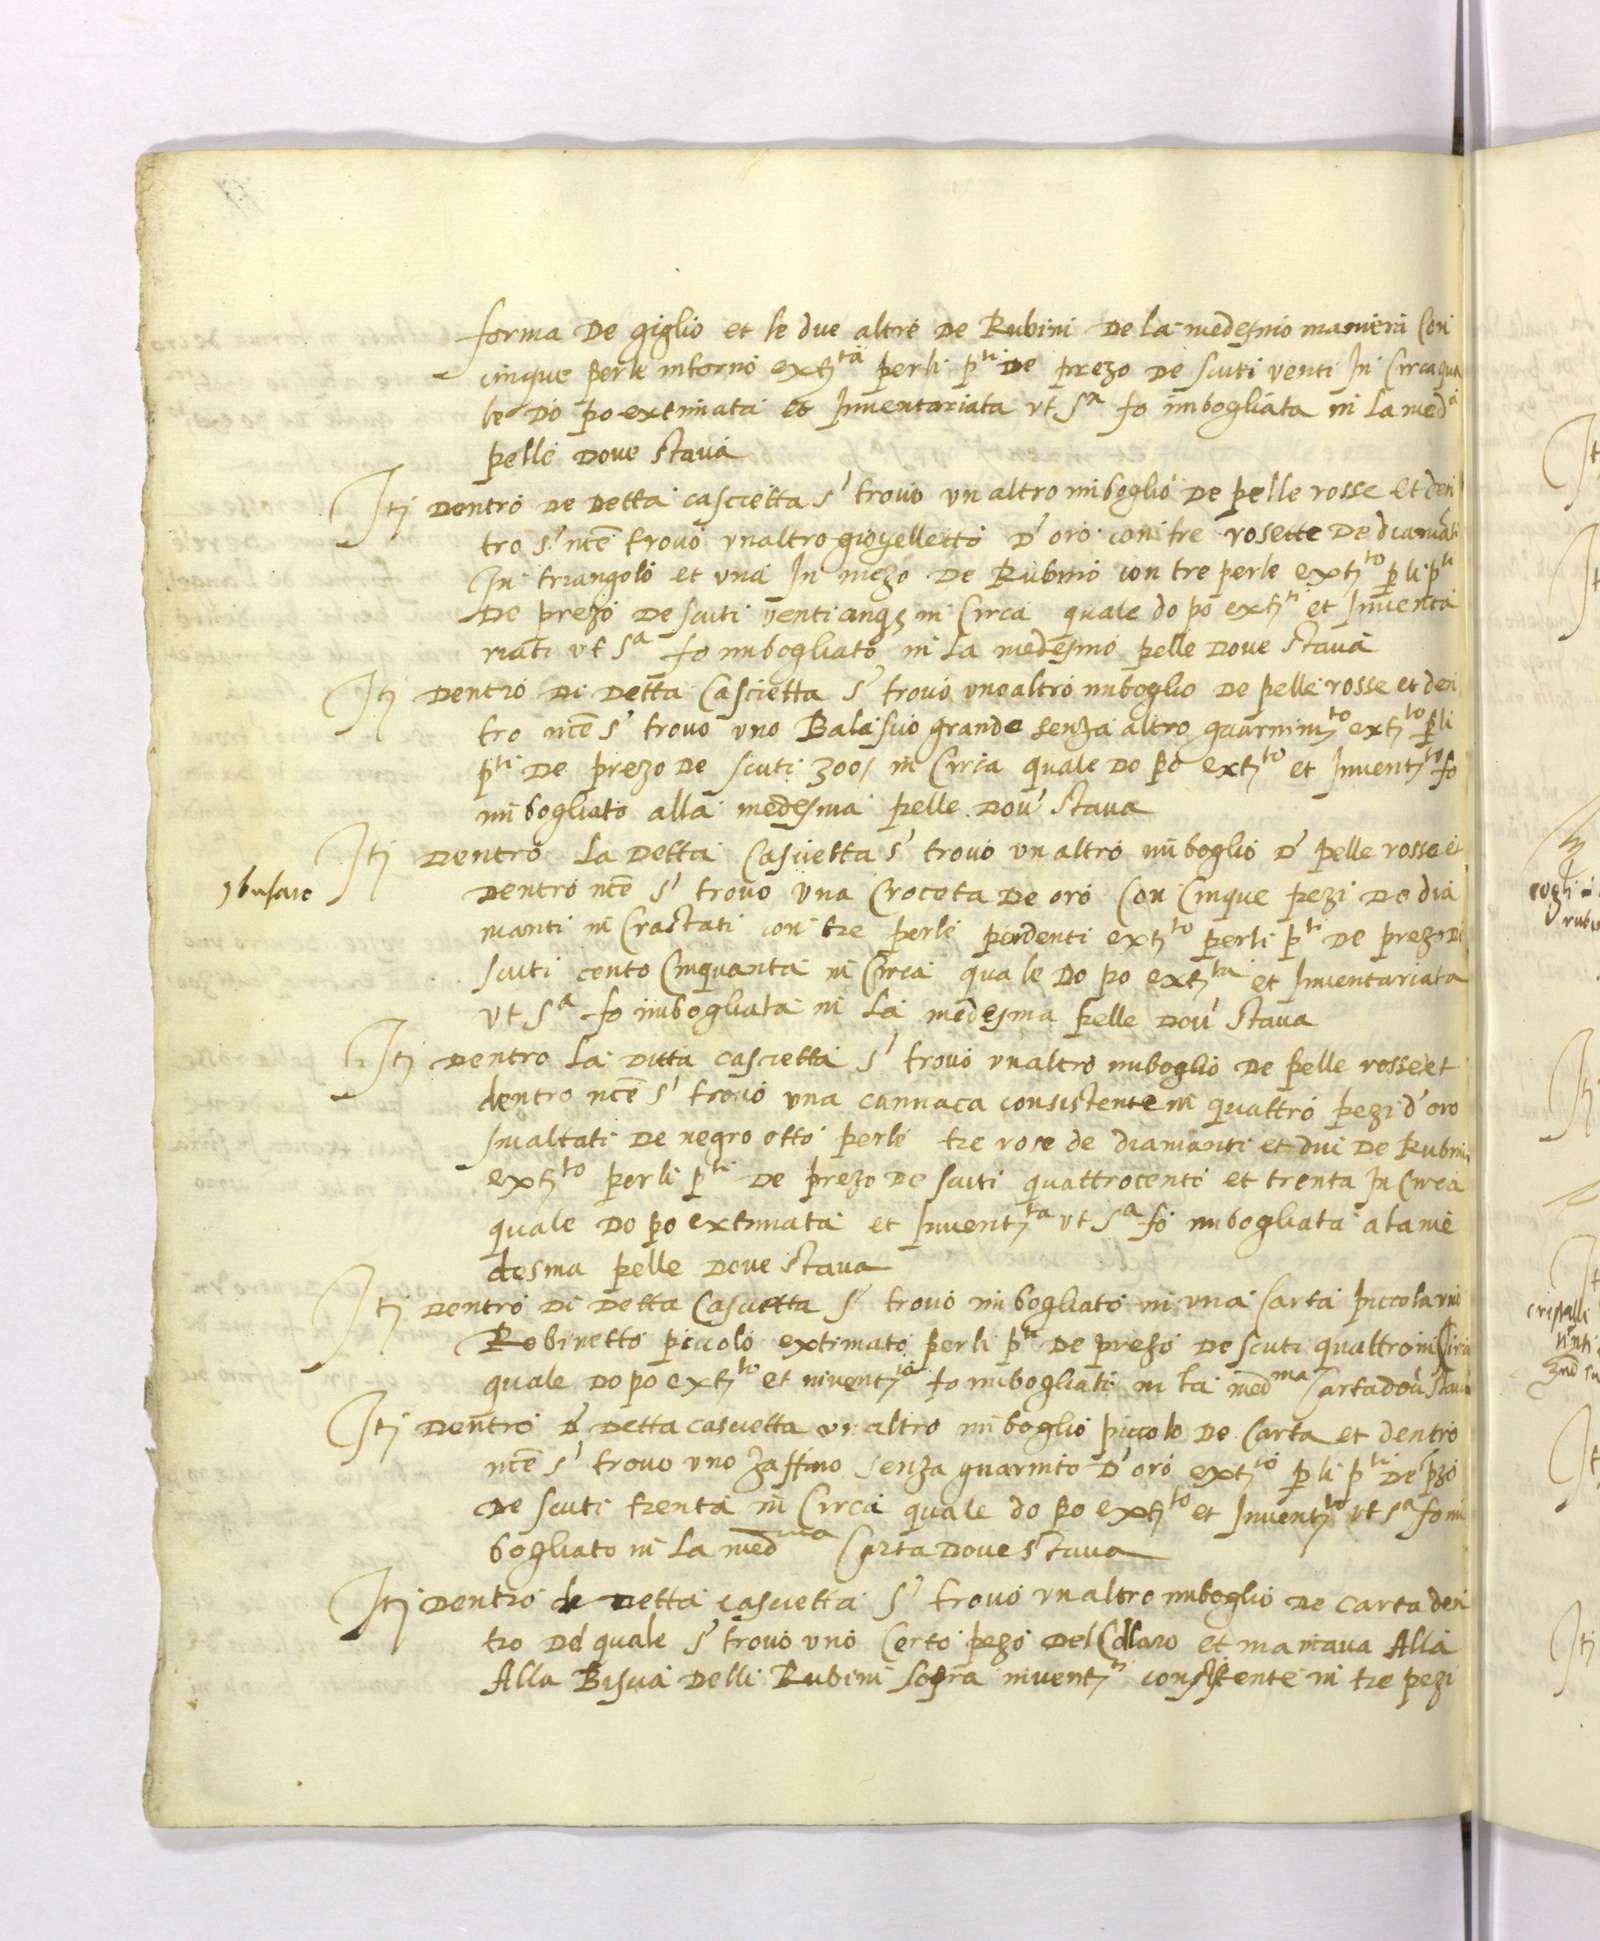 forma de giglio et le due altre de Rubini de la medesmo manieri con
cinque perle intorno ext^ta perli p^ti de prezo de scuti venti In Circa qua
le do po extimata et Inventariata ut s^a fo imbogliata in la med^a
pelle dove stava
Itj dentro de detta cascietta s' trovo un altro imboglio de pelle rosse et den
tro s' nce trovo unaltro gioyelletto d' oro con tre rosette de diamanti
In triangolo et una In mezo de Rubino con tre perle ext^to p li p^ti
de prezo de scuti venti in Circa quale do po ext^ti et Inventa
riati ut s^a fo imbogliato in la medesmo pelle dove stava
Itj dentro di detta Cascietta s' trovo uno altro imboglio de pelle rosse et den
tro nce s' trovo uno Balascio grande senza altro guarnim^to ext^to p li
p^ti de prezo de scuti 300/ in Circa quale do po ext^to et Invent^to fo
imbogliato alla medesma pelle dov' stava
Itj dentro la detta Cascietta s' trovo un altro imboglio d' pelle rosse et
dentro nce s' trovo una Croceta de oro Con Cinque pezi de dia
manti in Crastati con tre perle pendenti ext^to perli p^ti de prezo di
scuti cento Cinquanta in Circa quale do po ext^ta et Inventariata
ut s^a fo imbogliata in la medesma pelle dov' stava
Itj dentro la ditta cascietta s' trovo unaltro imboglio de pelle rosse et
dentro nce s' trovo una cannaca consistente in quattro pezi d' oro
smaltati de negro otto perle tre rose de diamanti et dui de Rubini
ext^to perli p^ti de prezo de scuti quattrocenti et trenta In Circa
quale do po extimata et Invent^ta ut s^a fo imbogliata a la me
desma pelle dove stava
Itj dentro di detta Cascietta s' trovo imbogliato in una Carta piccola uno
Robinetto piccolo extimato perli p^ti de prezo de scuti quattro in Circa
quale do po ext^to et invent^to fo imbogliati in la med^ma Carta dov' stava
Itj dentro de detta cascietta un altro imboglio piccolo de Carta et dentro
nce s' trovo uno zaffino senza guarnito d' oro ext^to p li p^ti de pzo
de scuti trenta in Circa quale do po ext^to et Invent^to ut s^a fo im
bogliato in la med^ma Carta dove stava
Itj dentro de detta cascietta s' trovo un altro imboglio de carta den
tro del quale s' trovo uno Certo pezo del Collaro et mancava Alla
Alla Biscia delli Rubini sopra invent^ti consistente in tre pezi